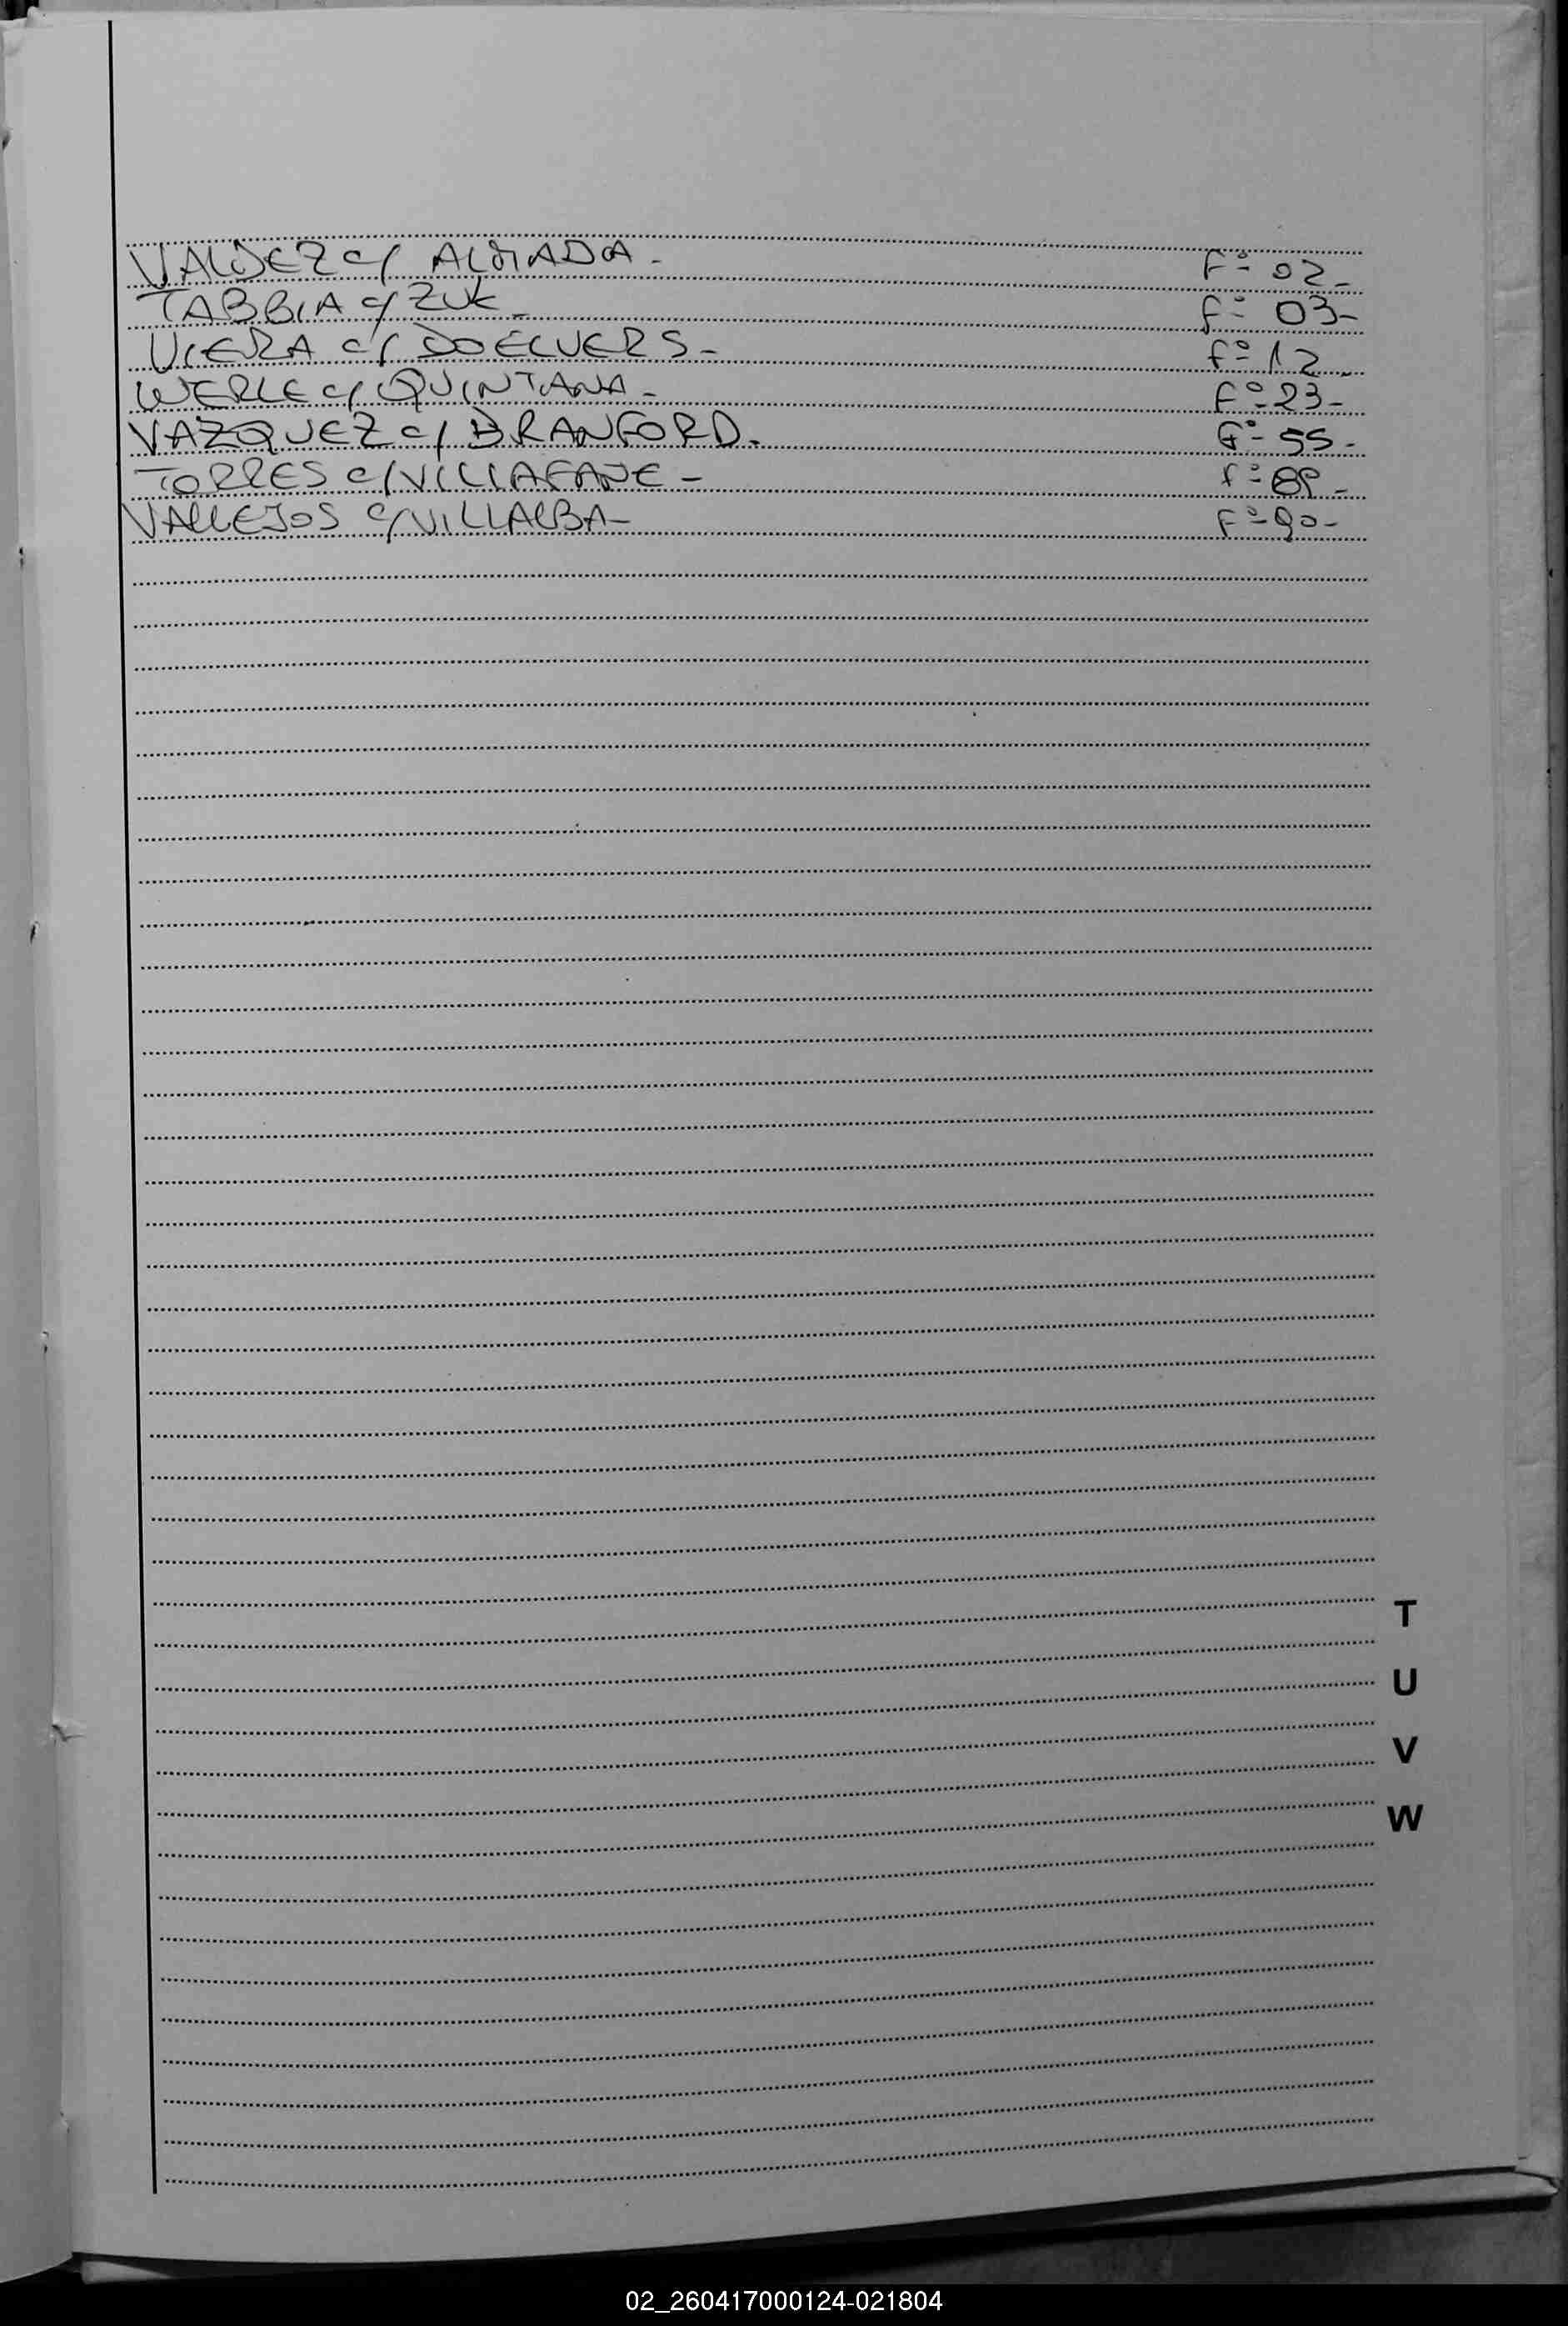 VALDEZ c/ ALMADA - Fº 02-
TABBIA c/ ZUK - Fº 03-
VIERA c/ DOELVERS - Fº 12-
WERLE c/ QUINTANA - Fº 23-
VAZQUEZ c/ BRANFORD. Fº 55-
TORRES c/ VILLAFAÑE - Fº 89-
VALLEJOS c/ VILLALBA - Fº 90-
T
U
V
W
02_260417000124-021804